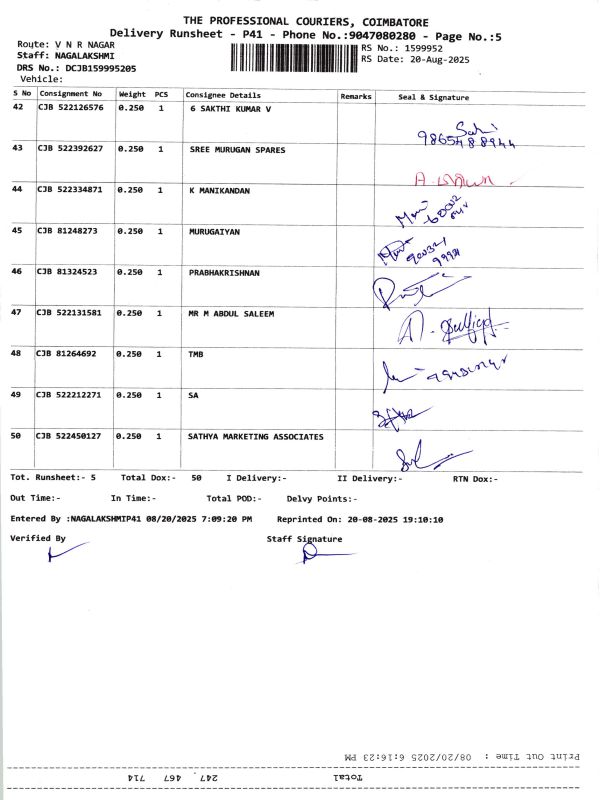 THE PROFESSIONAL COURIERS, COIMBATORE
Delivery Runsheet - P41 - Phone No.:9047080280 - Page No.:5
Route: V N R NAGAR
RS No.: 1599952
Staff: NAGALAKSHMI
RS Date: 20-Aug-2025
DRS No.: DCJB159995205
Vehicle:
S No Consignment No Weight PCS Consignee Details Remarks Seal & Signature
42 CJB 522126576 0.250 1 6 SAKTHI KUMAR V
43 CJB 522392627 0.250 1 SREE MURUGAN SPARES
44 CJB 522334871 0.250 1 K MANIKANDAN
45 CJB 81248273 0.250 1 MURUGAIYAN
46 CJB 81324523 0.250 1 PRABHAKRISHNAN
47 CJB 522131581 0.250 1 MR M ABDUL SALEEM
48 CJB 81264692 0.250 1 TMB
49 CJB 522212271 0.250 1 SA
50 CJB 522450127 0.250 1 SATHYA MARKETING ASSOCIATES
Tot. Runsheet:- 5 Total Dox:- 50 I Delivery:- II Delivery:- RTN Dox:-
Out Time:- In Time:- Total POD:- Delvy Points:-
Entered By :NAGALAKSHMIP41 08/20/2025 7:09:20 PM Reprinted On: 20-08-2025 19:10:10
Verified By Staff Signature
Print Out Time : 08/20/2025 6:16:23 PM
Total 247 467 714